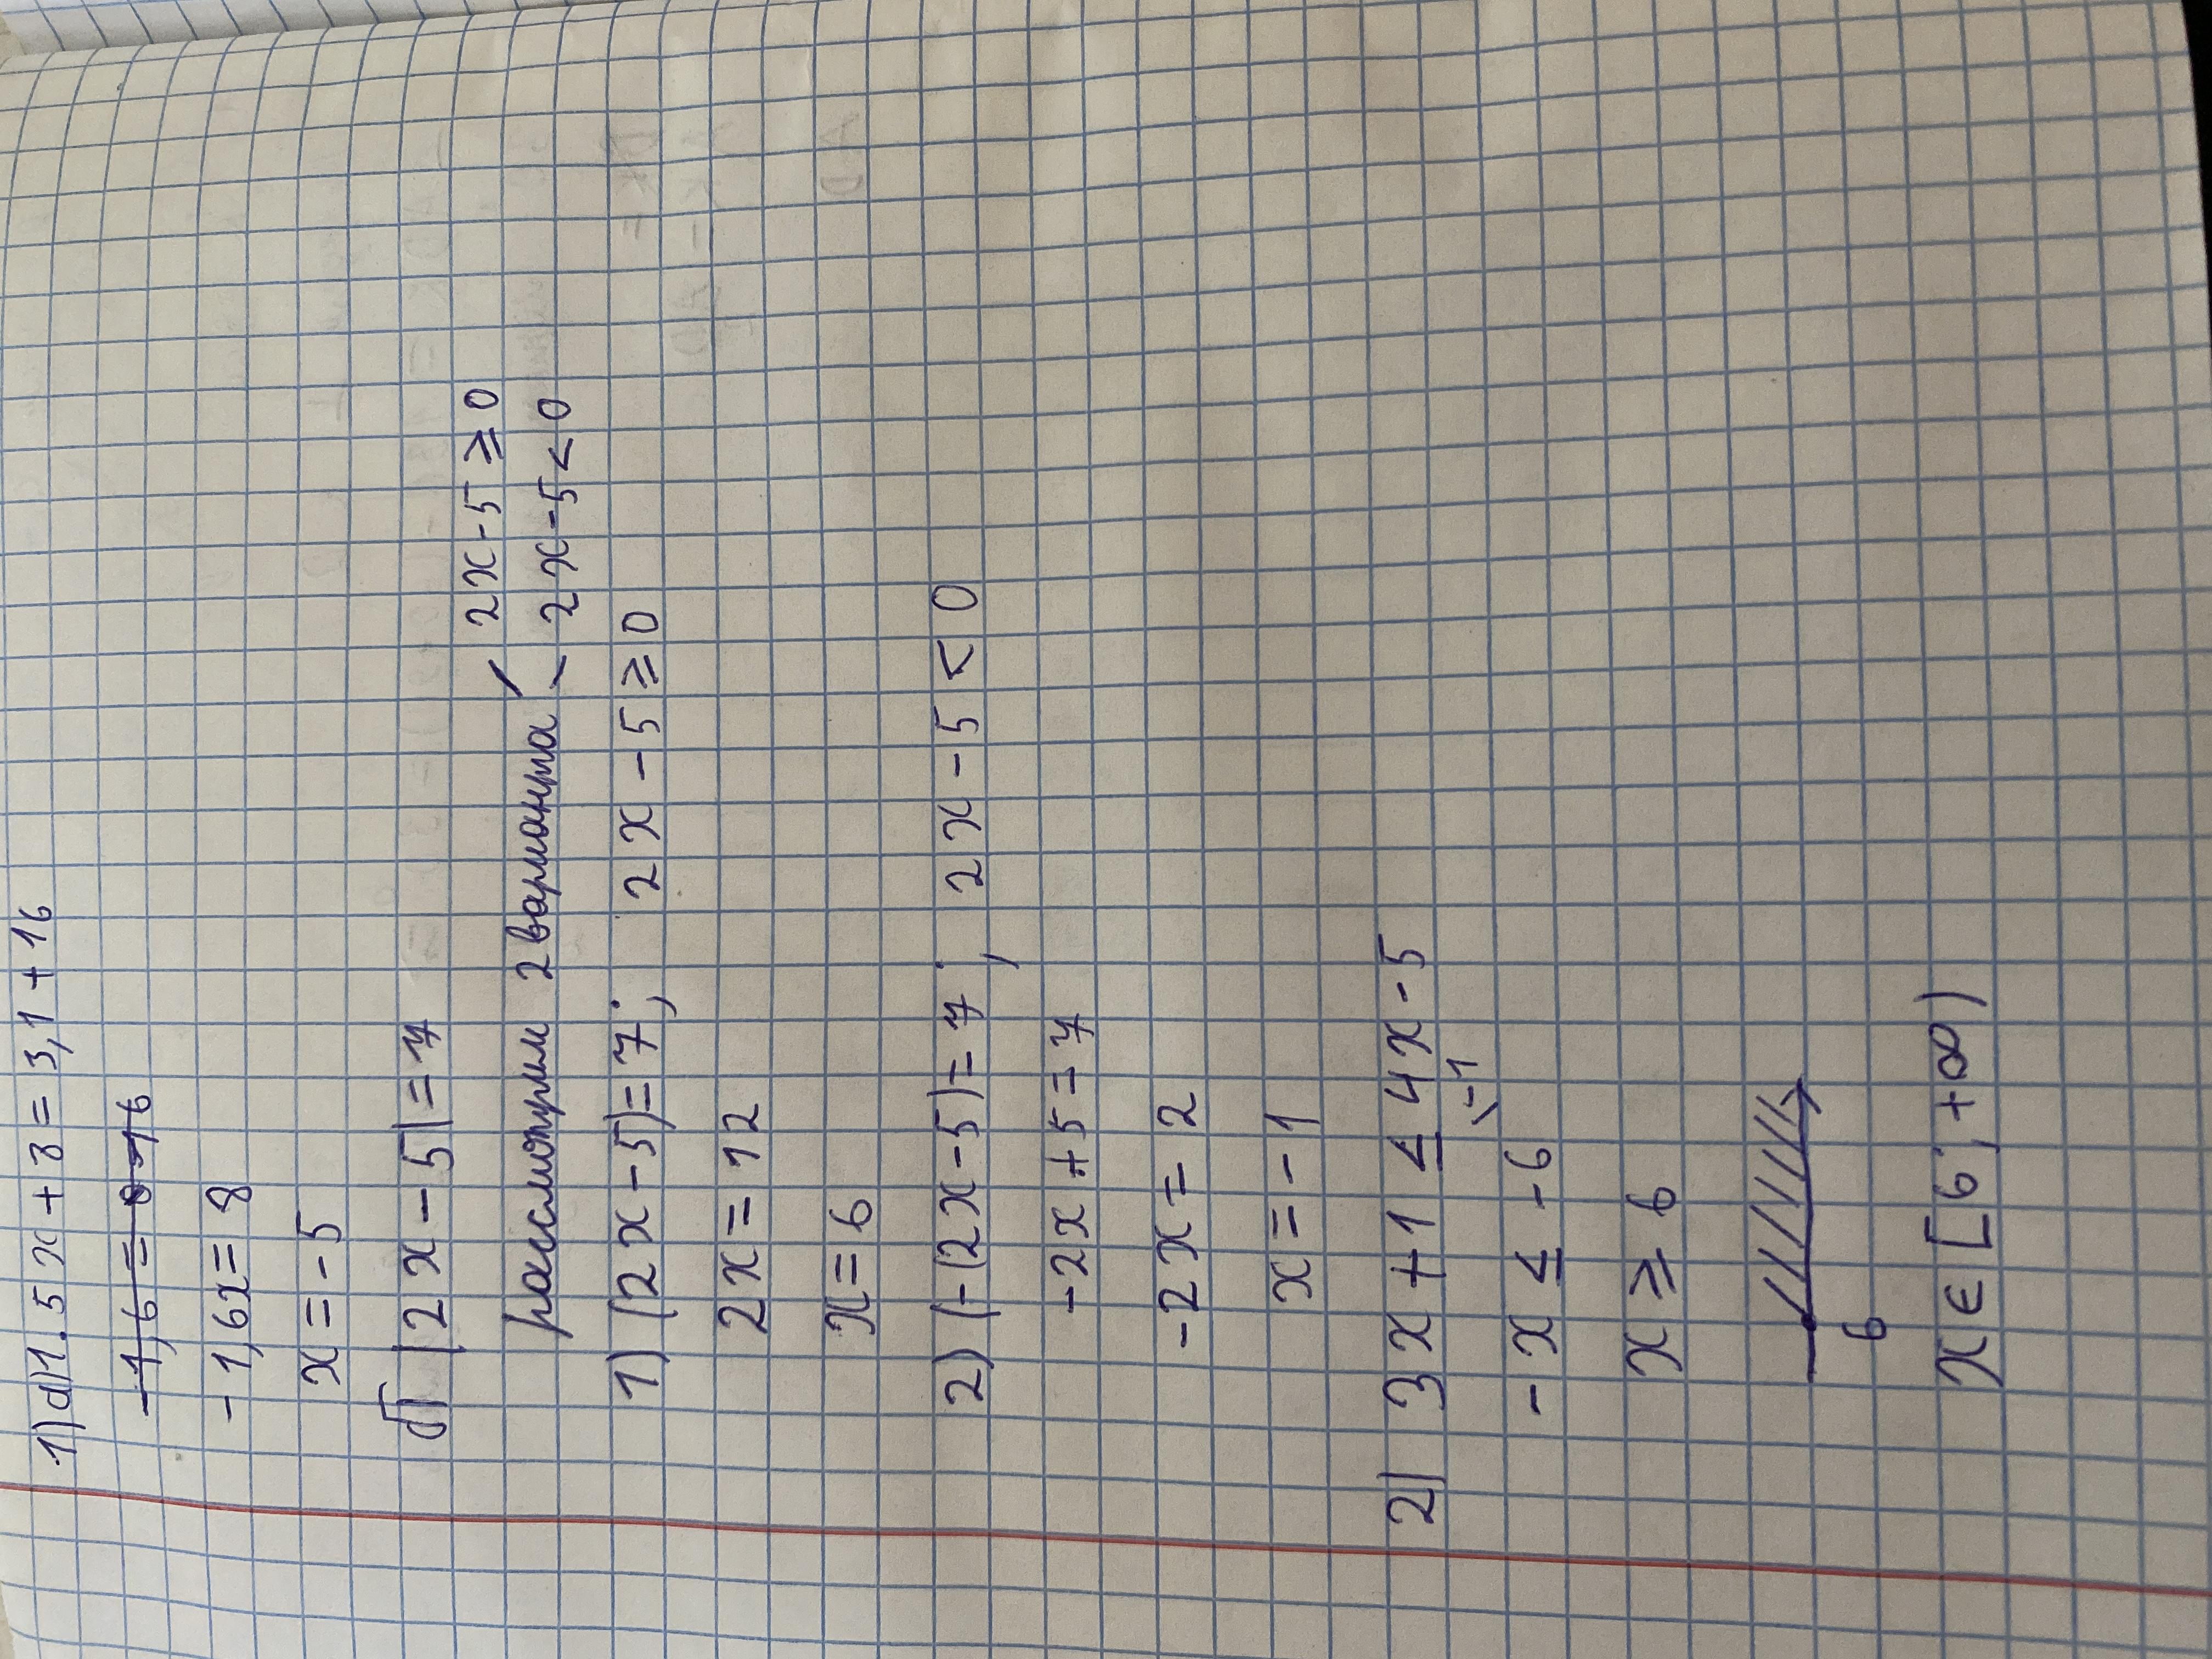 1) а) 1.5x + 8 = 3,1 + 16
-1,6 = 8-16
-1,6x = 8
x = -5
б) |2x - 5| = 7
рассмотрим 2 варианта
2x - 5 ≥ 0
2x - 5 < 0
1) (2x - 5) = 7; 2x - 5 ≥ 0
2x = 12
x = 6
2) (-(2x - 5) = 7; 2x - 5 < 0
-2x + 5 = 7
-2x = 2
x = -1
2) 3x + 1 ≤ 4x - 5
-x ≤ -6 \-1
x ≥ 6
6
x ∈ [6; +∞)